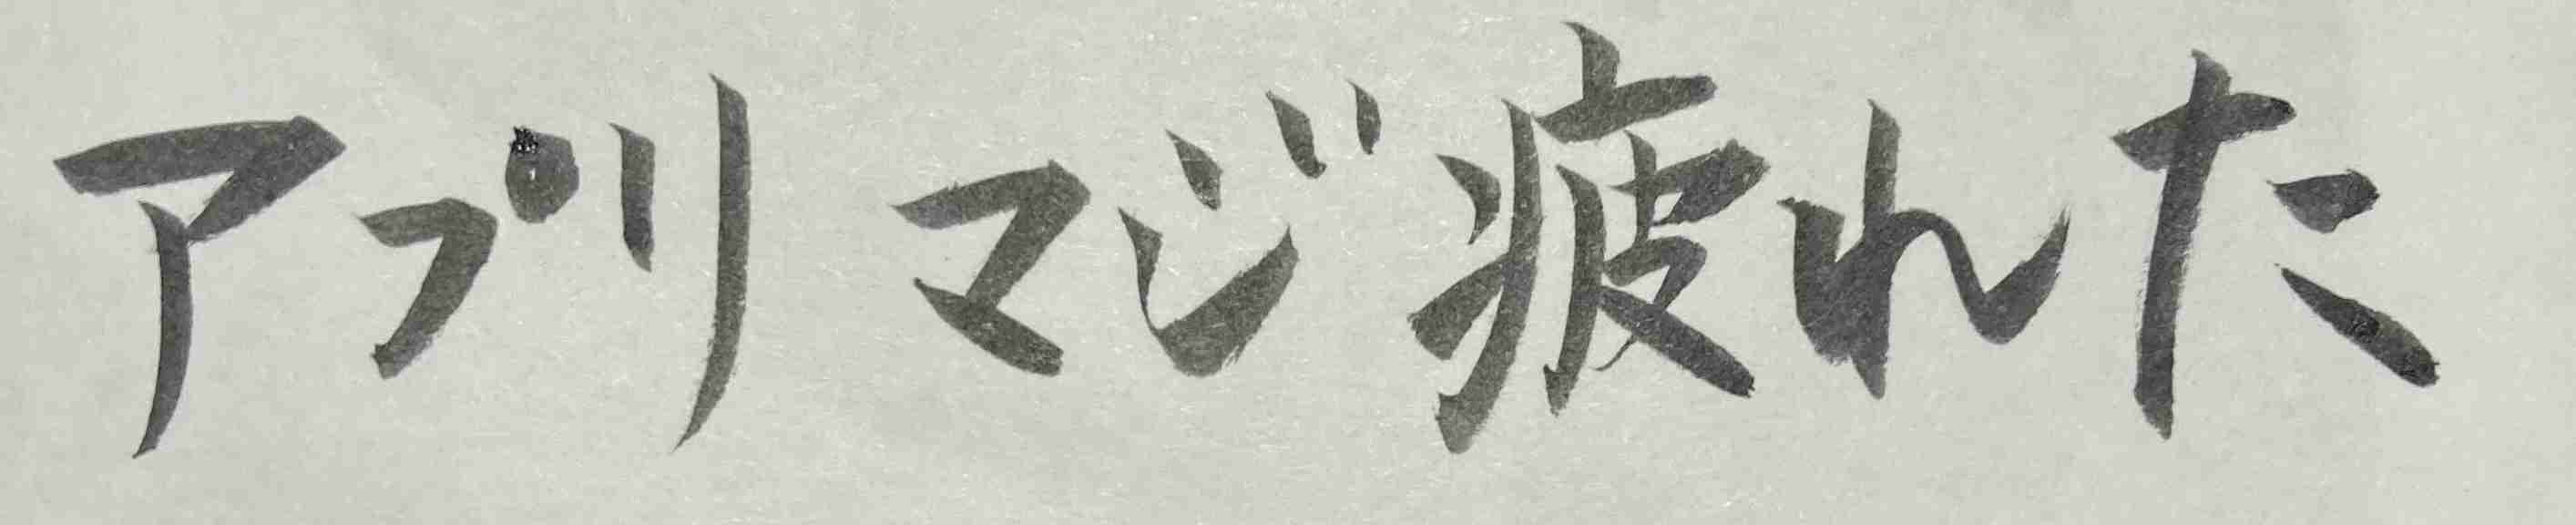 アプリ マジ疲れた